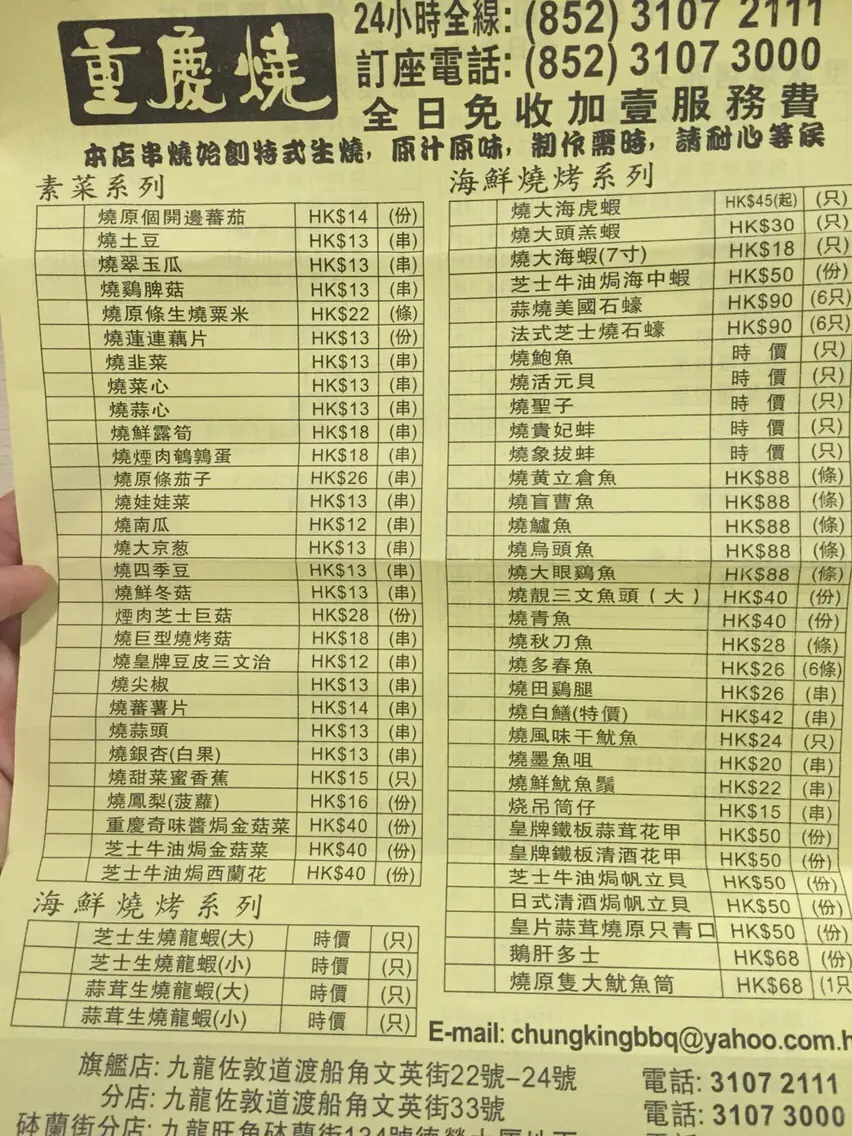 重慶燒
24小時全線: (852) 3107 2111
訂座電話: (852) 3107 3000
全日免收加壹服務費
本店串燒始創特式生燒, 原汁原味, 制作需時, 請耐心等候
素菜系列
燒原個開邊蕃茄 HK$14 (份)
燒土豆 HK$13 (串)
燒翠玉瓜 HK$13 (串)
燒鷄脾菇 HK$13 (串)
燒原條生燒粟米 HK$22 (條)
燒蓮連藕片 HK$13 (份)
燒韭菜 HK$13 (串)
燒菜心 HK$13 (串)
燒蒜心 HK$13 (串)
燒鮮露筍 HK$18 (串)
燒煙肉鵪鶉蛋 HK$18 (串)
燒原條茄子 HK$26 (串)
燒娃娃菜 HK$13 (串)
燒南瓜 HK$12 (串)
燒大京葱 HK$13 (串)
燒四季豆 HK$13 (串)
燒鮮冬菇 HK$13 (串)
煙肉芝士巨菇 HK$28 (份)
燒巨型燒烤菇 HK$18 (串)
燒皇牌豆皮三文治 HK$12 (串)
燒尖椒 HK$13 (串)
燒蕃薯片 HK$14 (串)
燒蒜頭 HK$13 (串)
燒銀杏(白果) HK$13 (串)
燒甜菜蜜香蕉 HK$15 (只)
燒鳳梨(菠蘿) HK$16 (份)
重慶奇味醬焗金菇菜 HK$40 (份)
芝士牛油焗金菇菜 HK$40 (份)
芝士牛油焗西蘭花 HK$40 (份)
海鮮燒烤系列
芝士生燒龍蝦(大) 時價 (只)
芝士生燒龍蝦(小) 時價 (只)
蒜茸生燒龍蝦(大) 時價 (只)
蒜茸生燒龍蝦(小) 時價 (只)
海鮮燒烤系列
燒大海虎蝦 HK$45(起) (只)
燒大頭羔蝦 HK$30 (只)
燒大海蝦(7寸) HK$18 (只)
芝士牛油焗海中蝦 HK$50 (份)
蒜燒美國石蠔 HK$90 (6只)
法式芝士燒石蠔 HK$90 (6只)
燒鮑魚 時 價 (只)
燒活元貝 時 價 (只)
燒聖子 時 價 (只)
燒貴妃蚌 時 價 (只)
燒象拔蚌 時 價 (只)
燒黄立倉魚 HK$88 (條)
燒盲曹魚 HK$88 (條)
燒鱸魚 HK$88 (條)
燒烏頭魚 HK$88 (條)
燒大眼鷄魚 HK$88 (條)
燒靚三文魚頭（大） HK$40 (份)
燒青魚 HK$40 (份)
燒秋刀魚 HK$28 (條)
燒多春魚 HK$26 (6條)
燒田鷄腿 HK$26 (串)
燒白鱔(特價) HK$42 (串)
燒風味干魷魚 HK$24 (只)
燒墨魚咀 HK$20 (串)
燒鮮魷魚鬚 HK$22 (串)
烧吊筒仔 HK$15 (串)
皇牌鐵板蒜茸花甲 HK$50 (份)
皇牌鐵板清酒花甲 HK$50 (份)
芝士牛油焗帆立貝 HK$50 (份)
日式清酒焗帆立貝 HK$50 (份)
皇片蒜茸燒原只青口 HK$50 (份)
鵝肝多士 HK$68 (份)
燒原隻大魷魚筒 HK$68 (1只
E-mail: chungkingbbq@yahoo.com.h
旗艦店: 九龍佐敦道渡船角文英街22號–24號 電話: 3107 2111
分店: 九龍佐敦道渡船角文英街33號 電話: 3107 3000
砵蘭街分店: 九龍旺角砵蘭街134號德